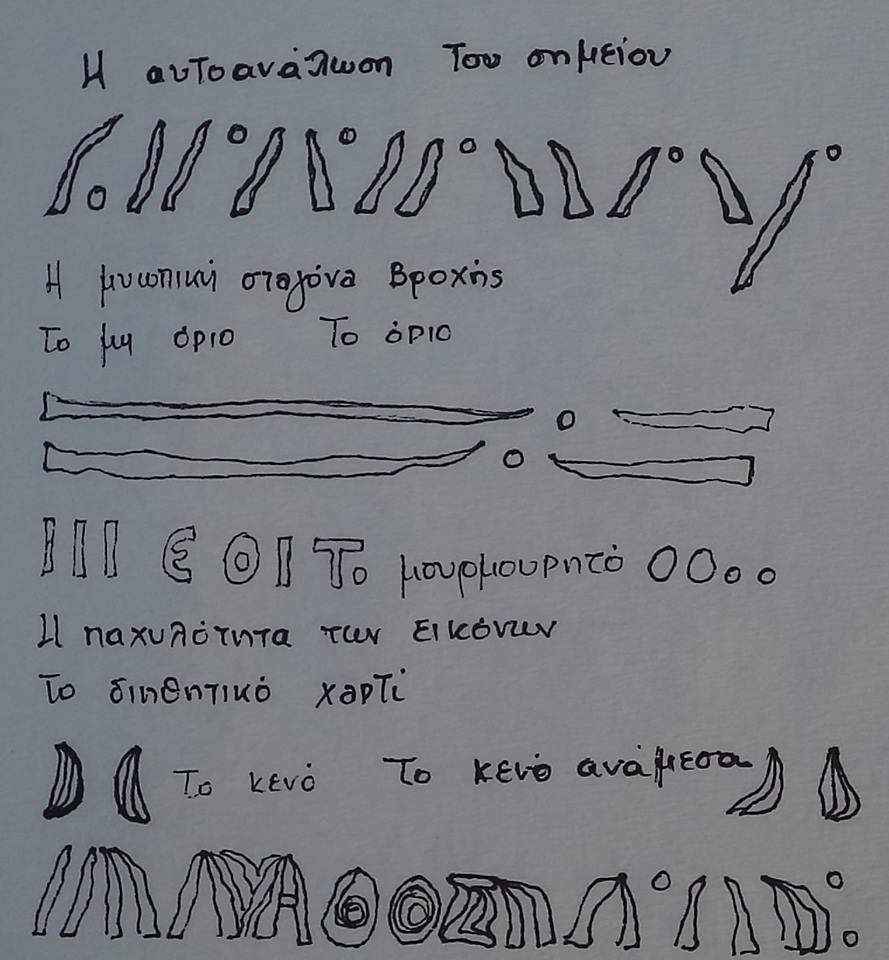 Η αυτοανάλωση Του σημείου
Η μυωπική σταγόνα Βροχής
Το μη όριο Το όριο
ΙΙΙ Є Θ Ι Το μουρμουρητό ΟΟοο
Η παχυλότητα των εικόνων
Το διηθητικό χαρτί
Το κενό Το κενό ανάμεσα